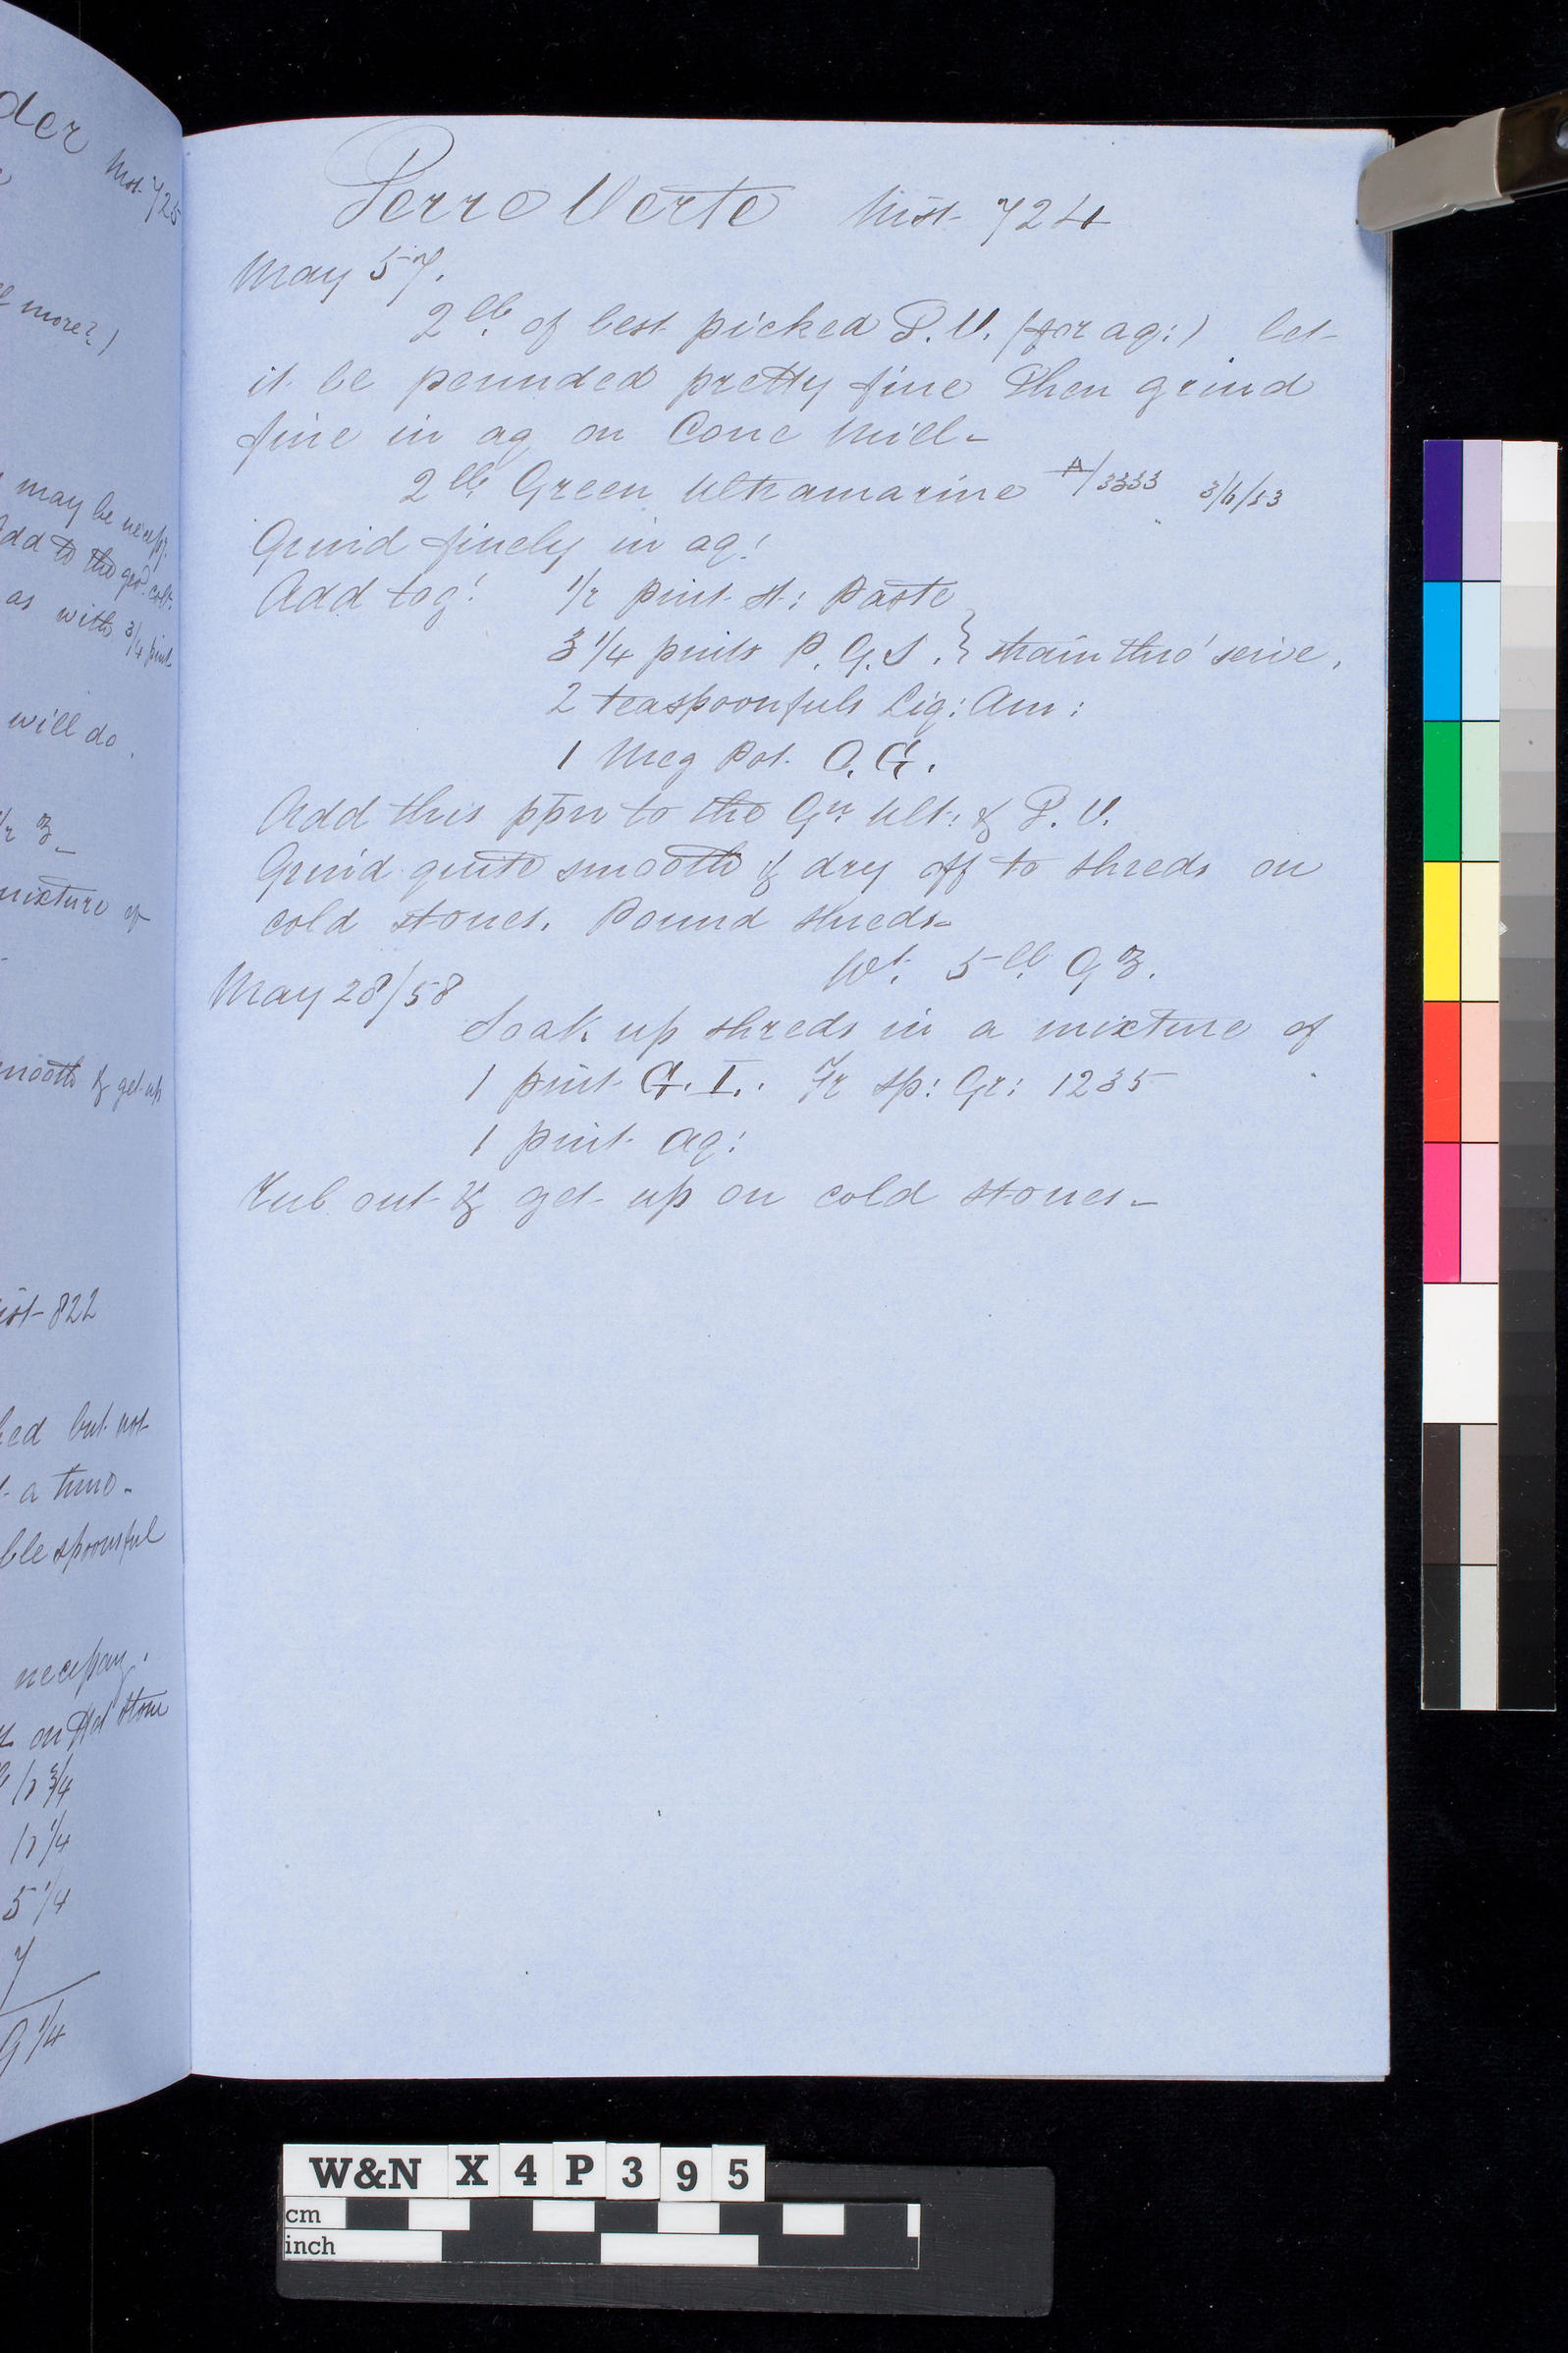 der Mst. 725
more?)
may be necessy.
add to the grd. colr.
as with 3/4 pint
will do.
mixture of
smooth & get up
822
but not
a time -
spoonsful
necessary.
on Hot Stone
3/4
1/4
5 1/4
7
9 1/4
Terre Verte Mist. 724
May 57.
2 lb. of best picked T.V. (for aq:) let
it be pounded pretty fine Then grind
fine in aq on Cone Mill -
2 lb. Green Ultramarine A/3333 3/6/53
Grind finely in aq:
Add tog: 1/2 pint st: Paste
3 1/4 pints P.G.S. } strain thro' seive.
2 teaspoonfuls Liq: Am:
1 Meg Pot. O.G.
Add this ppn to the Gn. Ult: & T.V.
Grind quite smooth & dry off to shreds on
cold stones. Pound shreds -
Wt. 5 lb. 9 3.
May 28/58
Soak up shreds in a mixture of
1 pint G.I.. Fr sp: Gr: 1235
1 pint aq:
Rub out & get up on cold stones -
W&N X4P395
cm
inch